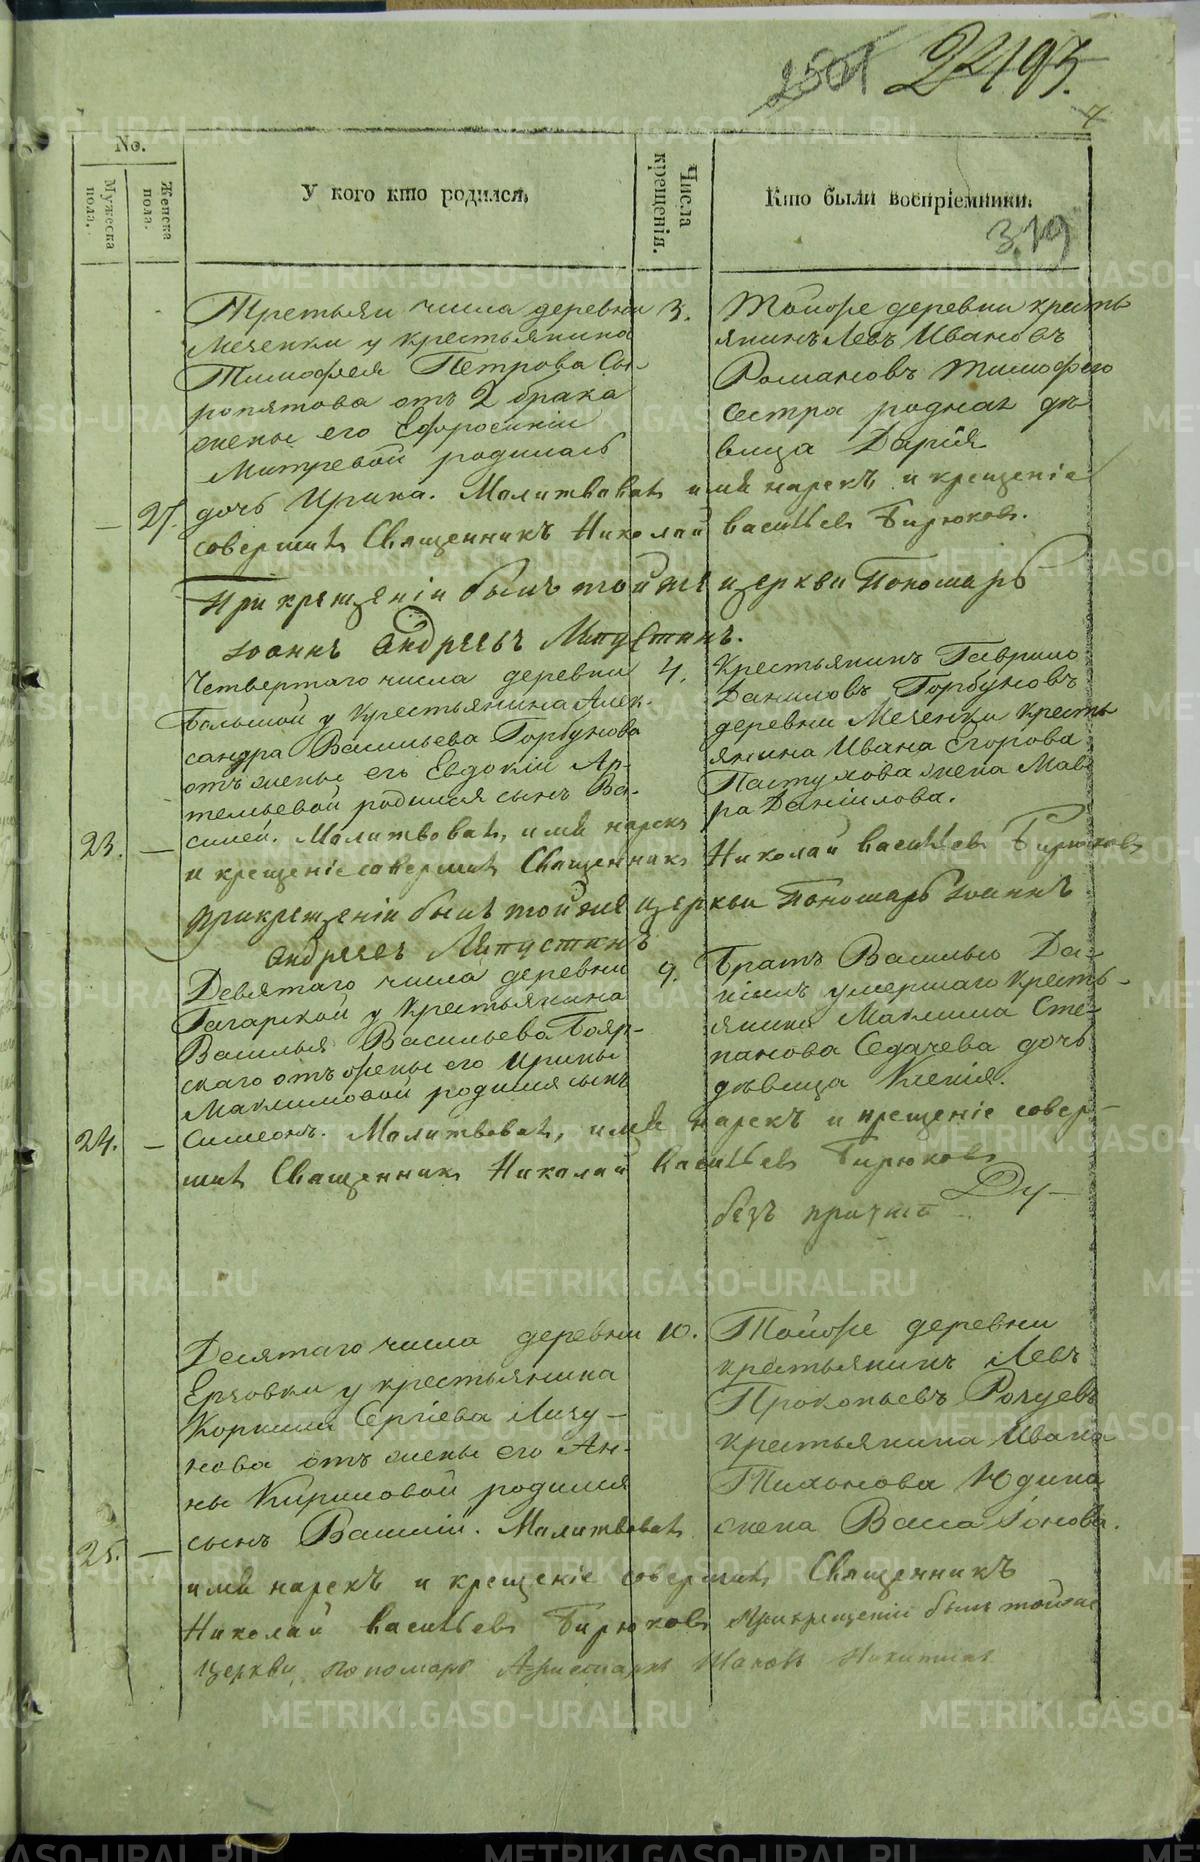 2501 2493.
7
No.
Мужеска пола.
Женска пола.
У кого кто родился.
Числа крещенія.
Кто были воспріемники.
319
Третьяго числа деревни
Меченки у крестьянина
Тимофея Петрова Сы-
ропятова отъ 2 брака
жены его Ефросиніи
Митревой родилась
27. дочь Ирина. Молитвовалъ имя нарекъ и крещеніе
совершилъ Священникъ Николай Васильевъ Бирюковъ.
При крещеніи былъ той же церкви Пономарь
Іоаннъ Андреевъ Лапустинъ.
3.
Тойже деревни кресть
янинъ Левъ Ивановъ
Романовъ Тимофею
сестра родная дѣ
вица Дарія
Четвертаго числа деревни
Большой у крестьянина Алек-
сандра Васильева Горбунова
отъ жены его Евдокіи Ар-
темьевой родился сынъ Ва-
23. — силей. Молитвовалъ, имя нарекъ
и крещеніе совершилъ Священникъ Николай Васильевъ Бирюковъ
При крещеніи былъ той же церкви Пономарь Іоаннъ
Андреевъ Лапустинъ
4.
Крестьянинъ Гаврило
Даниловъ Горбуновъ
деревни Меченки кресть
янина Ивана Егорова
Пастухова жена Мав
ра Даніилова.
Девятаго числа деревни
Гагарской у крестьянина
Василья Васильева Бояр-
скаго отъ жены его Ирины
Максимовой родился сынъ
24. — Симеонъ. Молитвовалъ, имя нарекъ и крещеніе совер-
шилъ Священникъ Николай Васильевъ Бирюковъ
безъ причта
9.
Братъ Василью Да-
ніилъ умершаго кресть-
янина Максима Сте-
панова Седачева дочь
дѣвица Ксенія.
Десятаго числа деревни
Ерзовки у крестьянина
Корнила Сергіева Мичу-
нова отъ жены его Ан-
ны Кириловой родился
25. — сынъ Василій. Молитвовалъ
имя нарекъ и крещеніе совершилъ Священникъ
Николай Васильевъ Бирюковъ При крещеніи былъ тойже
церкви, пономарь Аристархъ Никитинъ
10.
Тойже деревни
крестьянинъ Левъ
Прокопьевъ Рочуевъ
крестьянина Ивана
Тихонова Юдина
жена Васса Іонова.
METRIKI.GASO-URAL.RU